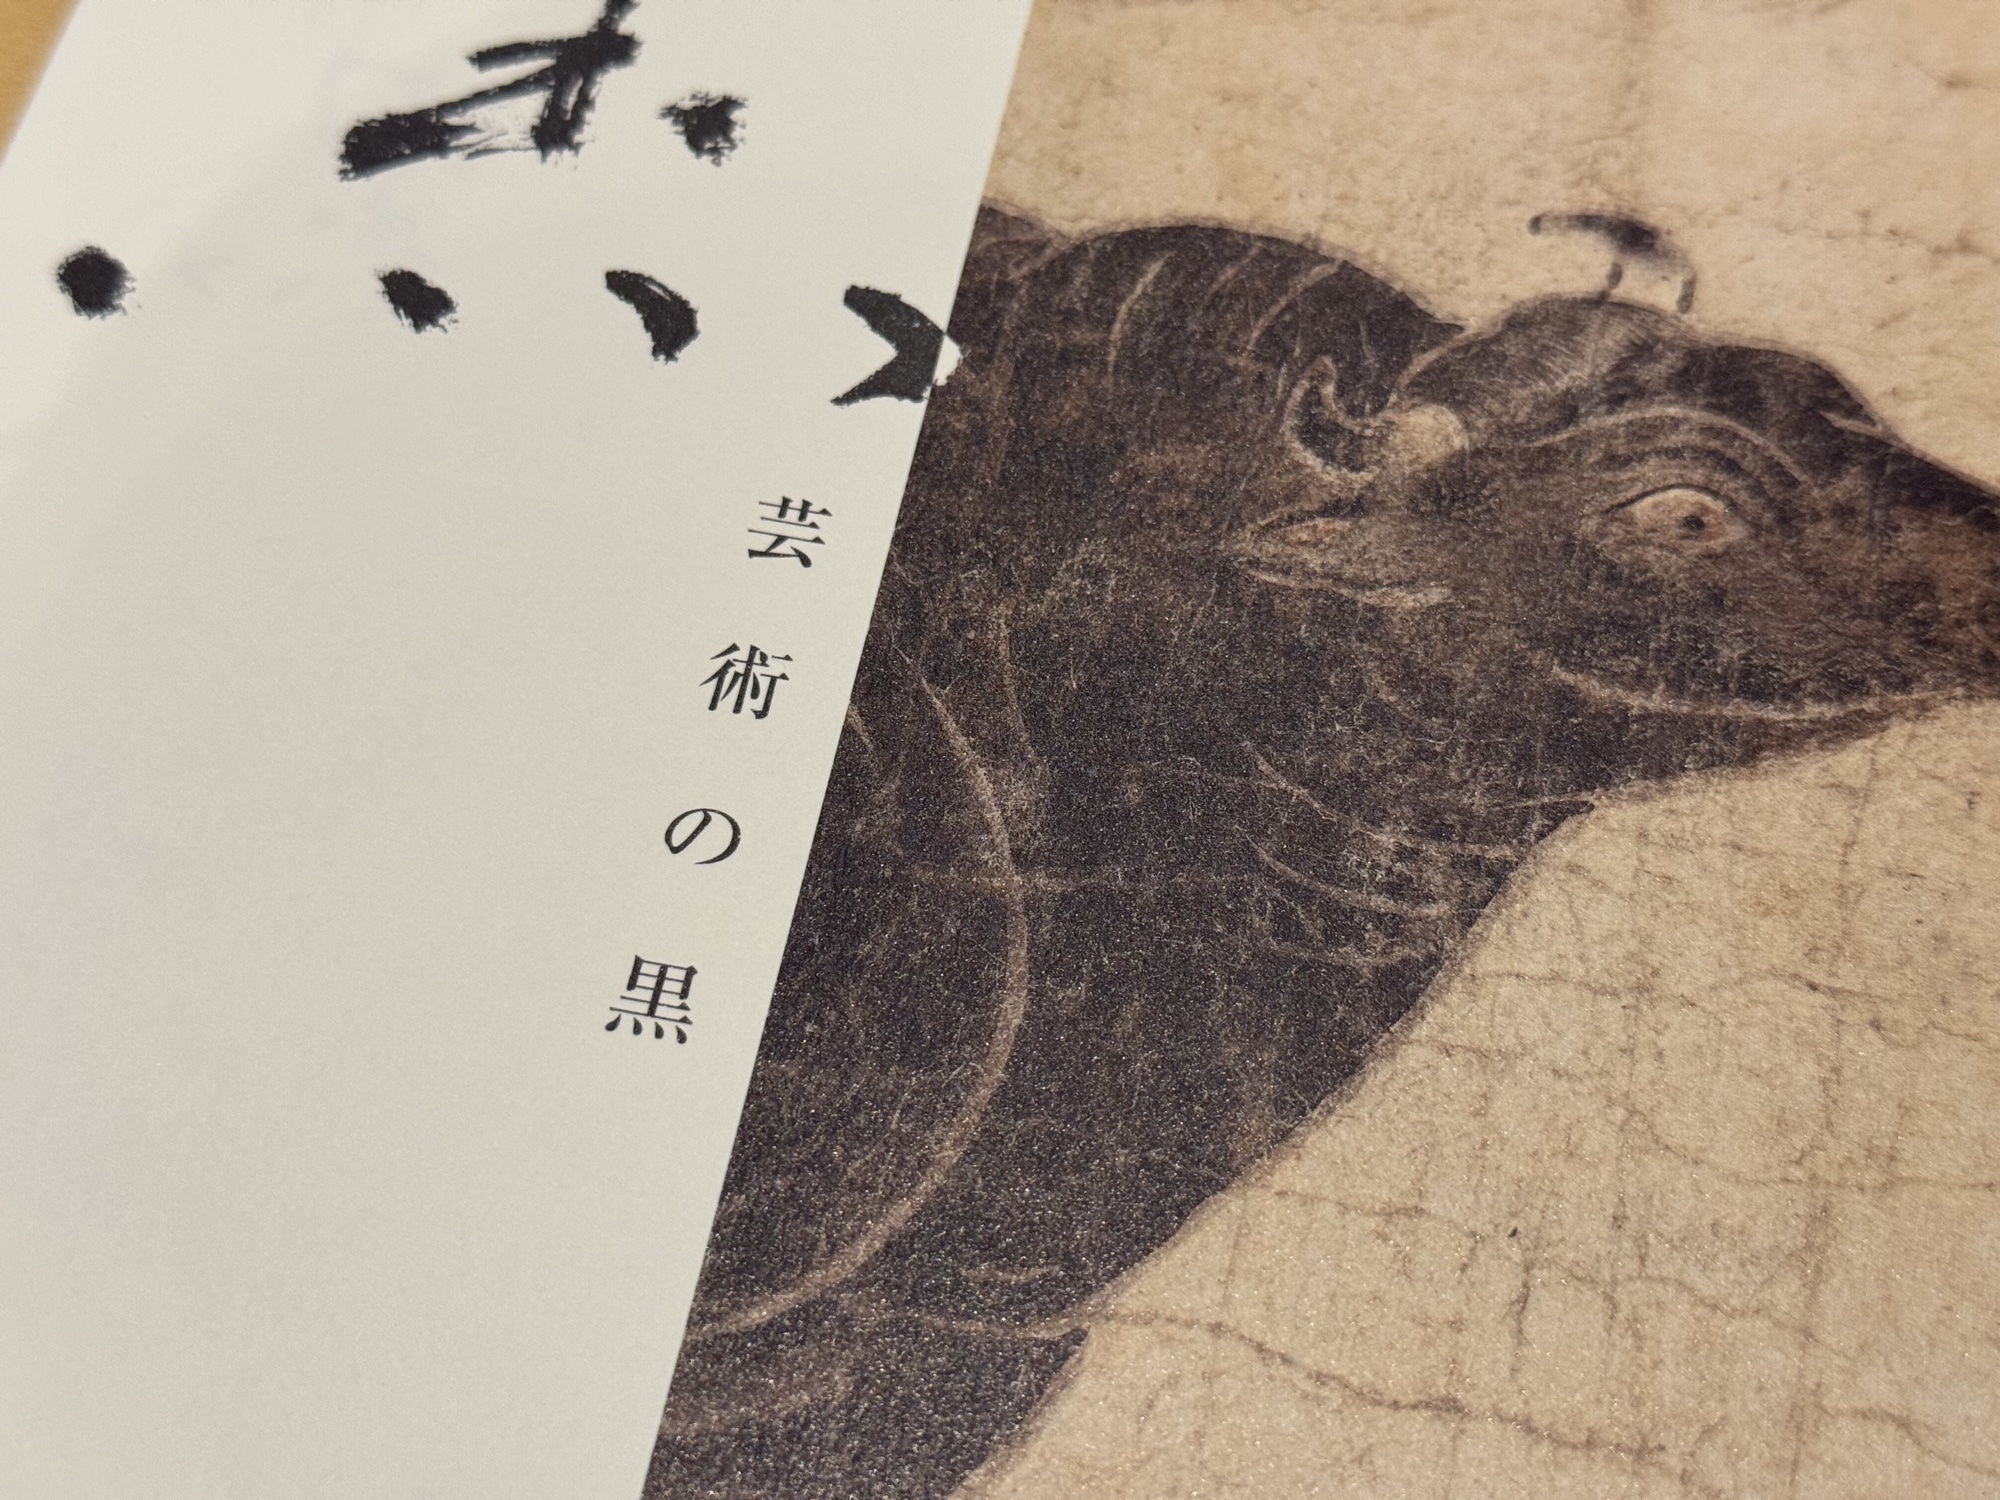 芸術の黒